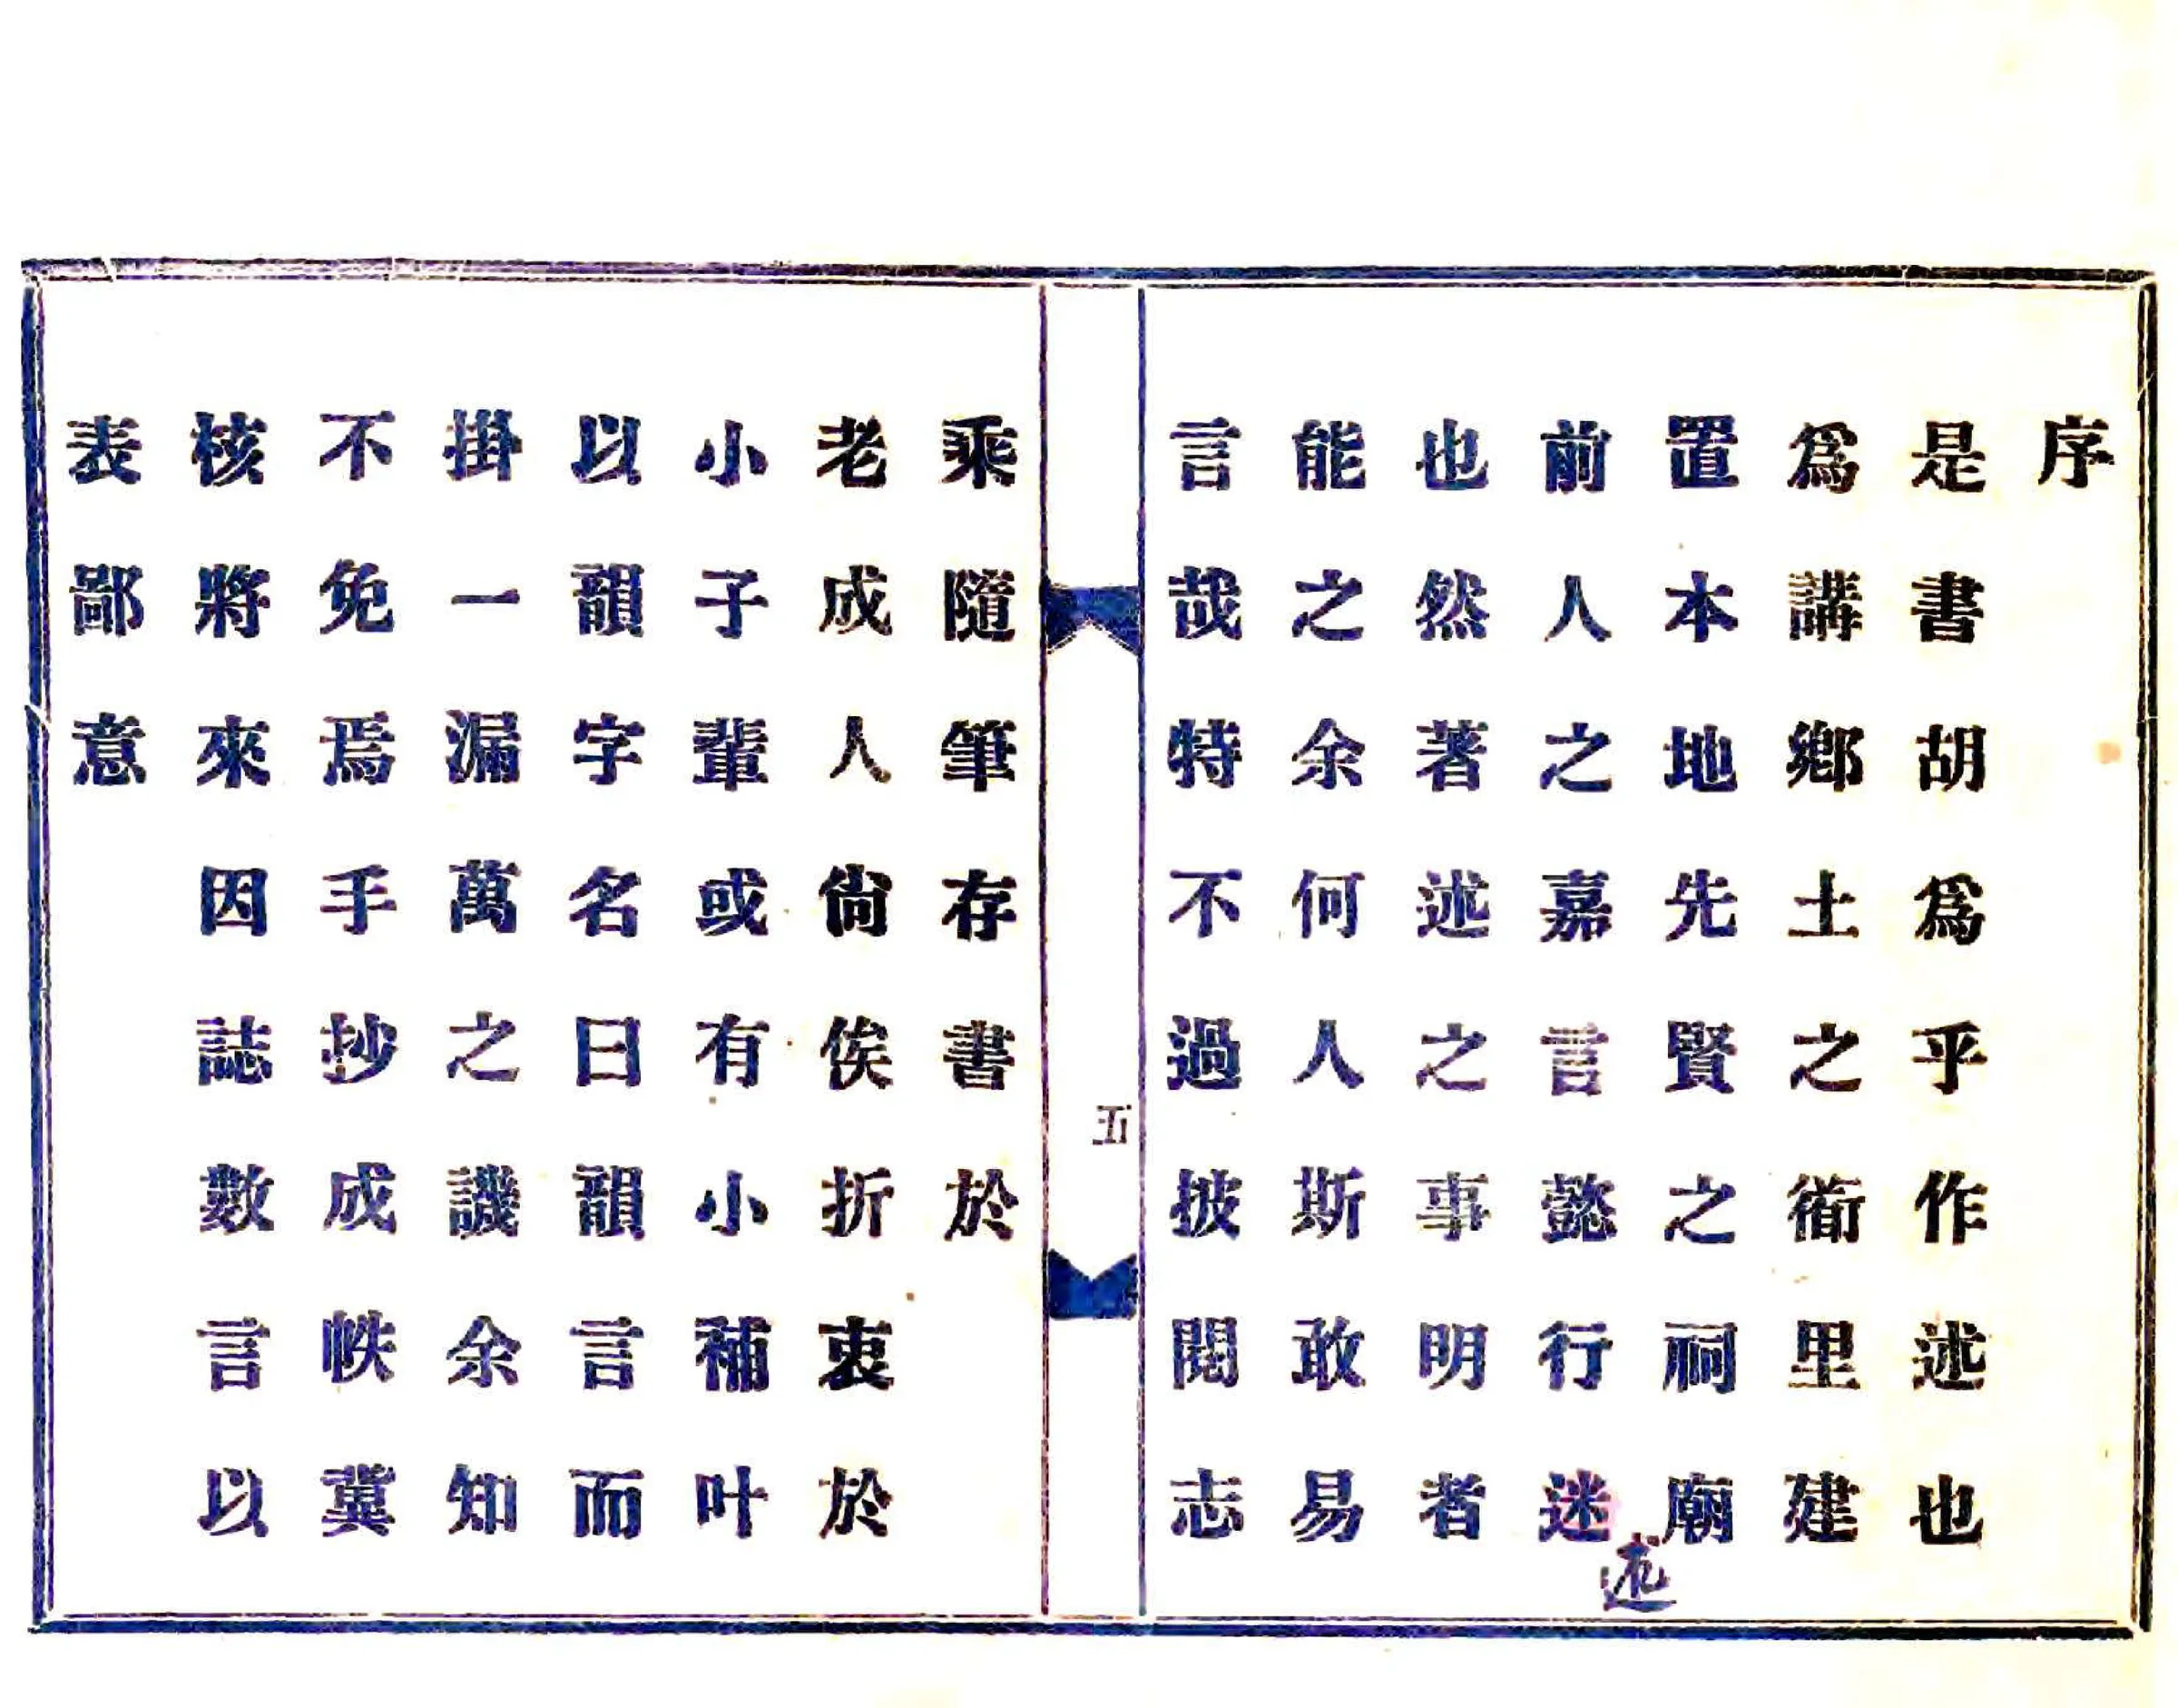 序
是書胡為乎作述也
為講鄉土之衜里建
置本地先賢之祠廟
前人之嘉言懿行迷
述
也然著述之事明者
能之余何人斯敢易
言哉特不過披閱志
五
乘隨筆存書於
老成人尙俟折衷於
小子輩或有小補叶
以韻字名曰韻言而
掛一漏萬之譏余知
不免焉手抄成帙冀
核將來因誌數言以
表鄙意